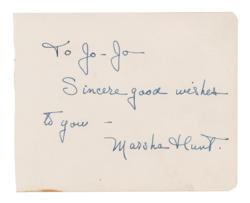 To Jo-Jo
Sincere good wishes
to you -
Marsha Hunt.